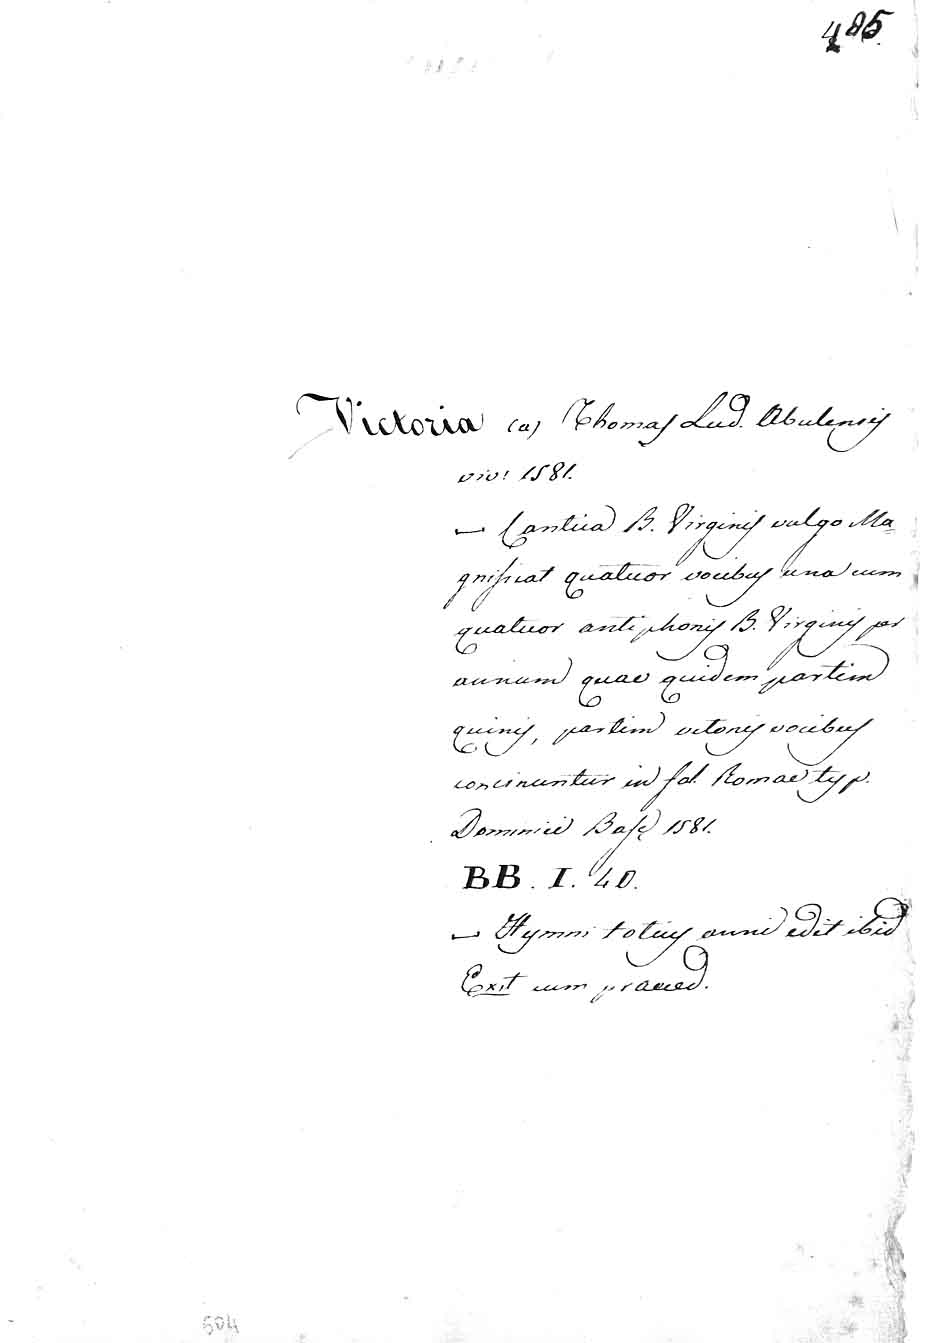 485.
Victoria (a) Thomas Lud. Abulensis
viv: 1581.
— Cantica B. Virginis vulgo Ma=
gnificat quatuor vocibus una cum
quatuor antiphonis B. Virginis per
annum quae quidem partim
quinis, partim octonis vocibus
concinuntur in fol. Romae typ.
Dominici Basę 1581.
BB. I. 40.
— Hymni totius anni edit ibid
Exit cum praeced.
504